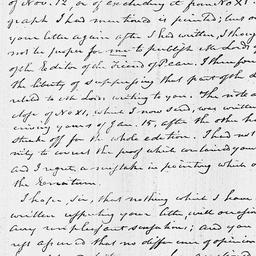 of Nov. 12, or of excluding it from No XI.
graph I had mentioned is printed; but on
your letter again after I had written, I thoug
not be proper for me to publish the Lords
of the Editor of the Friend of Peace. I therefore
the liberty of suppressing that part of the
related to the Lords writing to you. The note a
close of No XI, which I now send, was written
ceiving yours of Jan. 15, after the other h
struck off for the whole edition. I had not
nity to correct the proof which contained your
and I regret a mistake in pointing which o
the Erratum.
I hope, Sir, that nothing which I have
written respecting your letter, will occasion
any unpleasant sensations; and you
rest assured that no difference of opinion